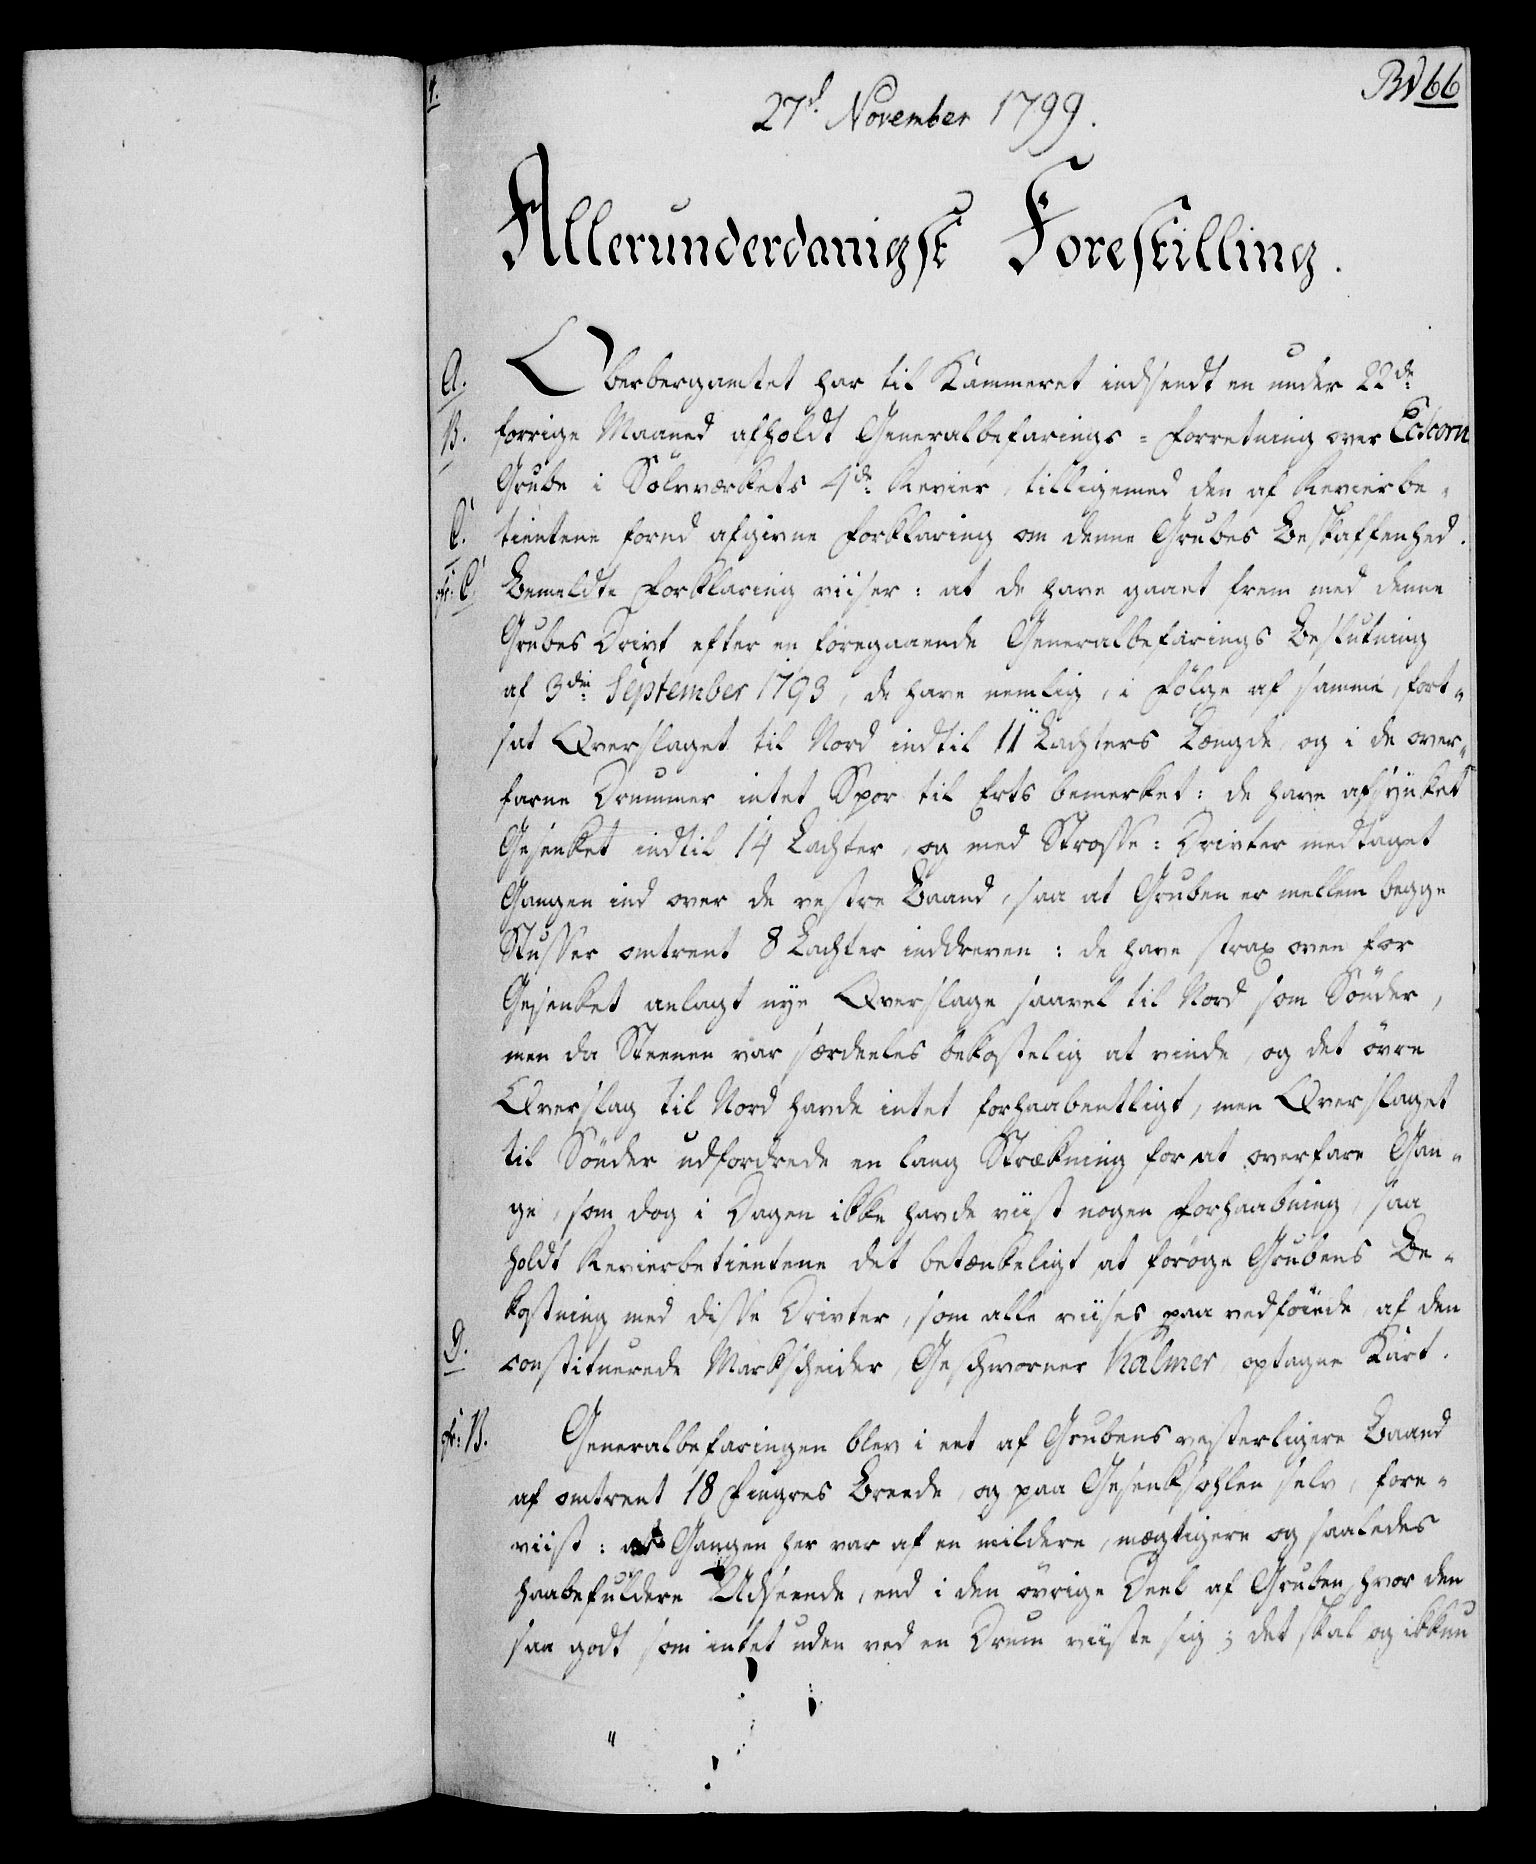 Bv66
27d. November 1799.
Allerunderdanigst Forestilling.
A. Oberbergamtet har til Kammeret indsendt en under 22de
B. forrige Maaned afholdt Generalbefarings-Forretning over
Grube i Sølvværkets 4de Revier, tilligemed den af Revierbe-
C. tientene forud afgivne Forklaring om denne Grubes Beskaffenhed.
cfr: C. Bemeldte Forklaring viiser: at de have gaaet frem med denne
Grubes Drivt efter en foregaaende Generalbefarings Beslutning
af 3die September 1793, de have nemlig, i Følge af samme, fort-
sat Overslaget til Nord indtil 11 Lachters Længde og i de over-
farne Drummer intet Spor til Erts bemerket: de have afsynket
Gesenket indtil 14 Lachter, og med Strosse-Drivter medtaget
Gangen ind over de vestre Baand, saa at Gruben er mellem begge
Stusser omtrent 8 Lachter inddreven: de have strax oven for
Gesenket anlagt nye Overslage saavel til Nord som Sönder,
men da Steenen var særdeeles bekostelig at vinde, og det övre
Overslag til Nord havde intet forhaabentligt, men Overslaget
til Sönder udfordrede en lang Strækning for at overfare Gan-
ge, som dog i Dagen ikke havde viist nogen Forhaabning, saa
holdt Revierbetientene det betænkeligt at foröge Grubens Be-
kostning med disse Drivter, som alle viises paa vedföiede, af den
D. constituerede Markscheider, Geschworner Kalmer, optagne Kart.
cfr: B. Generalbefaringen blev i eet af Grubens vesterligere Baand
af omtrent 18 Fingres Breede, og paa Gesenksohlen selv, fore-
viist: at Gangen her var af en mildere, mægtigere og saaledes
haabefuldere Udseende, end i den övrige Deel af Gruben, hvor den
saa godt som intet uden ved en Drum viiste sig; det skal og ikkun